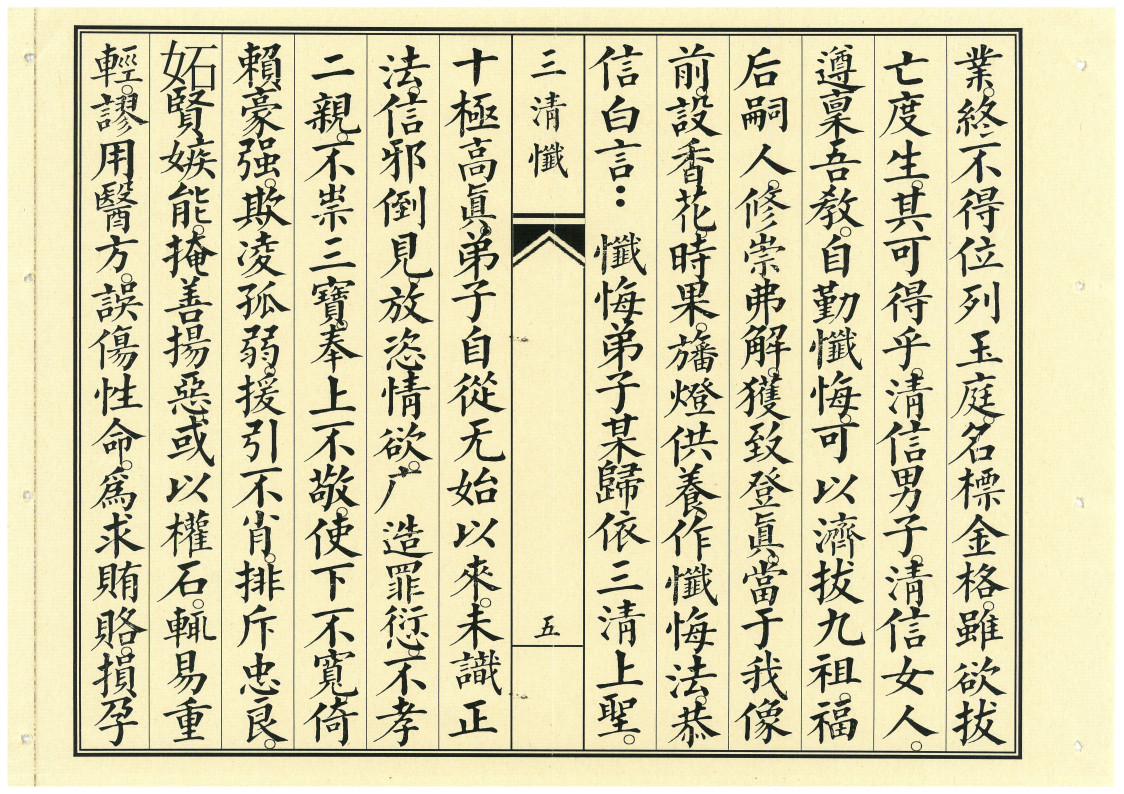 業。終不得位列玉庭。名標金格。雖欲拔
亡度生。其可得乎。清信男子。清信女人。
遵稟吾教。自勤懺悔。可以濟拔九祖。福
后嗣人。修崇弗解。獲致登眞。當于我像
前。設香花。時果。旛燈供養。作懺悔法。恭
信白言：懺悔弟子某歸依三清上聖。
三清懺
五
十極高眞。弟子自從无始以來。未識正
法。信邪倒見。放恣情欲。广造罪愆。不孝
二親。不祟三寶。奉上不敬。使下不寬。倚
賴豪强。欺凌孤弱。援引不肖。排斥忠良。
妬賢嫉能。掩善揚惡。或以權石。輒易重
輕。謬用醫方。誤傷性命。爲求賄賂。損孕